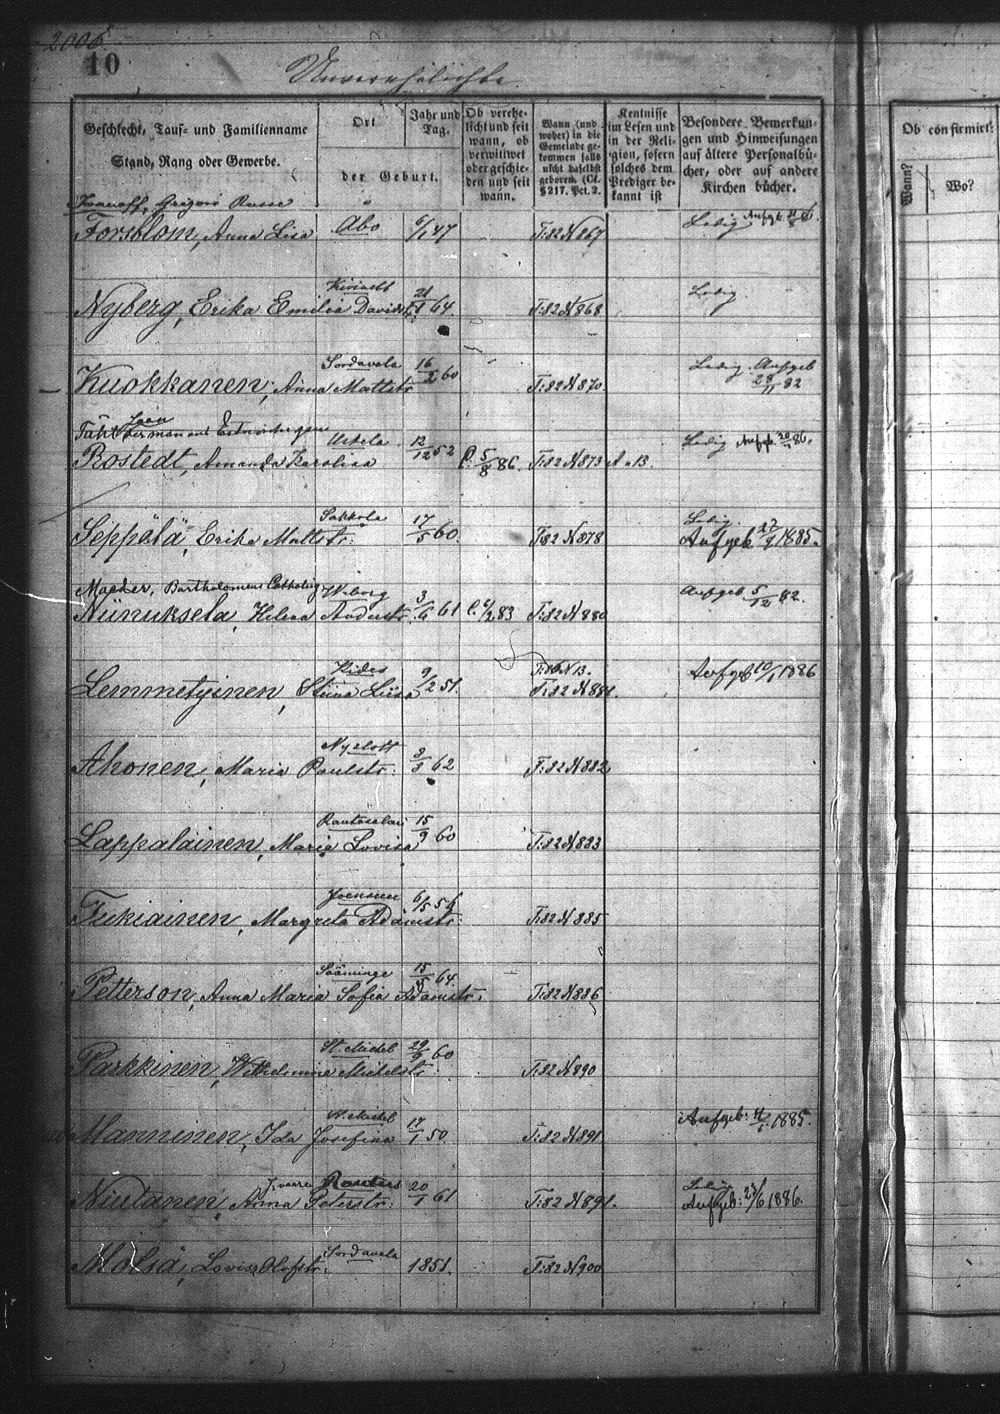 2006.
10
Unverehelichte
Geschlecht, Tauf- und Familienname
Stand, Rang oder Gewerbe.
Ort
der Geburt.
Jahr und Tag.
Ob verehelicht und seit wann, ob verwitwet oder geschieden und seit wann.
Wann (und woher) in die Gemeinde gekommen falls nicht daselbst geboren. (Cf. § 217. Pct. 2.
Kentnisse im Lesen und in der Religion, sofern solches dem Prediger bekannt ist
Besondere Bemerkungen und Hinweisungen auf ältere Personalbücher, oder auf andere Kirchen bücher.
Ob confirmirt:
Wann?
Wo?
Iwanoff, Grigori Russe
Forsblom, Anna Lisa Abo 6/1 47 T:82 N 867 Ledig Aufg.
Nyberg, Erika Emilia Davidst. 64. T:82 N 868 Ledig
Kuokkanen, Anna Mattstr. Sordavala 16/2 60 T:82 N 870. Ledig. Aufgeb 82
Rostedt, Amanda Karolina Uskela 12/12 52 C. 5/8 86. T:82 N 873 A. 13. Ledig Aufg. 20/ 86.
Seppälä, Erika Mattstr. Sakkola 17/5 60. T:82 N 878 Ledig. Aufgeb 1885.
Maeder, Bartholomeus Catholig
Niinuksela, Helena Anderstr. Wiborg 3/ 61 C. 6/2 83 T:82 N 880 Aufgeb 5/12 82.
Lemmetyinen, Stina Liisa Kides 9/2 51. T:86 N 13. T:82 N 881. Aufgeb 10/1 1886
Ahonen, Maria Paulstr: Nyslott 3/3 62 T:82 N 882
Lappalainen, Maria Lovisa Rautasalmi 15/9 60 T:82 N 883
Tukiainen, Margreta Adamstr: Joensuu 6/5 54 T:82 N 885
Petterson, Anna Maria Sofia Adamstr. Sääminge 15/ 64. T:82 N 886
Parkkinen, Wilhelmina Michelstr St. Michel 29/9 60 T:82 N 890
Manninen, Ida Josefina St. Michel 17/1 50. T:82 N 891 Aufgeb: 1885.
Niutanen, Anna Peterstr: Rautus 20/1 61 T:82 N 891. Ledig Aufgeb: 23/6 1886.
Mölsä, Lovisa Olofstr. Sordavala 1851. T:82 N 900